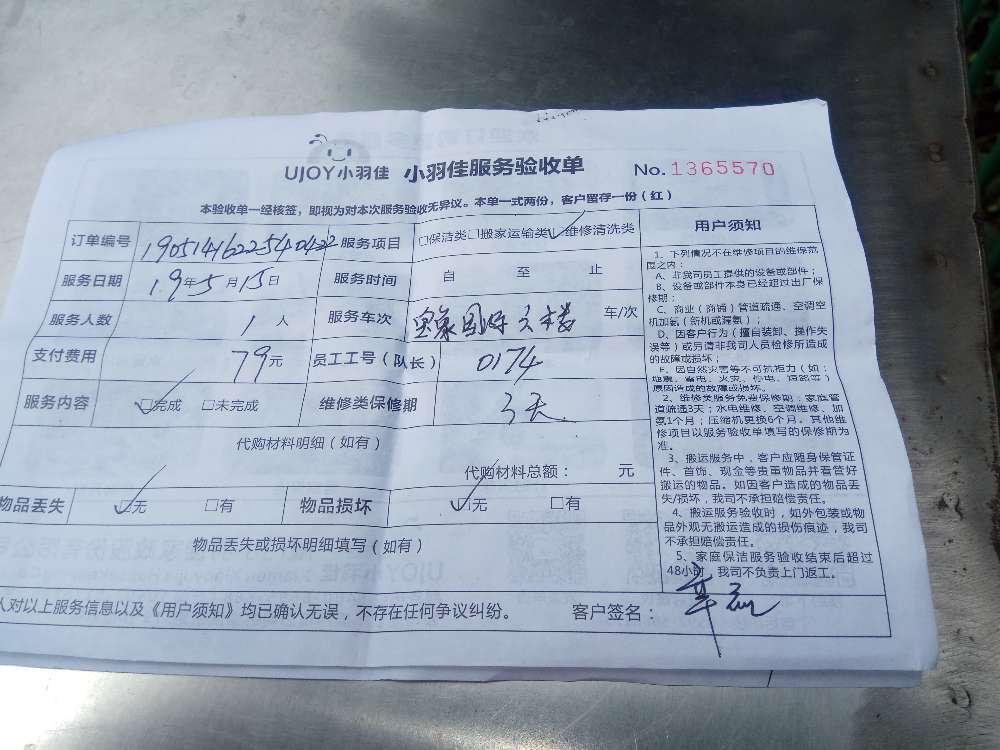 UJOY小羽佳 小羽佳服务验收单 No.1365570
本验收单一经核签,即视为对本次服务验收无异议。本单一式两份,客户留存一份(红)
订单编号 190514162254042 服务项目 □保洁类□搬家运输类□维修清洗类
服务日期 19年5月15日 服务时间 自 至 止
服务人数 1人 服务车次 国际大楼 车/次
支付费用 79元 员工工号(队长) 0174
服务内容 □完成 □未完成 维修类保修期 3天
代购材料明细(如有)
代购材料总额: 元
物品丢失 □无 □有 物品损坏 □无 □有
物品丢失或损坏明细填写(如有)
人对以上服务信息以及《用户须知》均已确认无误,不存在任何争议纠纷。 客户签名:
用户须知
1、下列情况不在维修项目的维保范
度之内:
A、非我司员工提供的设备或部件;
B、设备或部件本身已经超过出厂保
修期;
C、商业(商铺)管道疏通、空调空
机加氨(新机或漏氨);
D、因客户行为(擅自装卸、操作失
误等)或另请非我司人员检修所造成
的故障或损坏;
E、因自然灾害等不可抗拒力(如:
地震、雷电、火灾、停电、短路等)
原因造成的故障或损坏。
2、维修类服务免费保修期:家庭管
道疏通3天;水电维修、空调维修、加
氨1个月;压缩机更换6个月。其他维
修项目以服务验收单填写的保修期为
准。
3、搬运服务中,客户应随身保管证
件、首饰、现金等贵重物品并看管好
搬运的物品。如因客户造成的物品丢
失/损坏,我司不承担赔偿责任。
4、搬运服务验收时,如外包装或物
品外观无搬运造成的损伤痕迹,我司
不承担赔偿责任。
5、家庭保洁服务验收结束后超过
48小时,我司不负责上门返工。